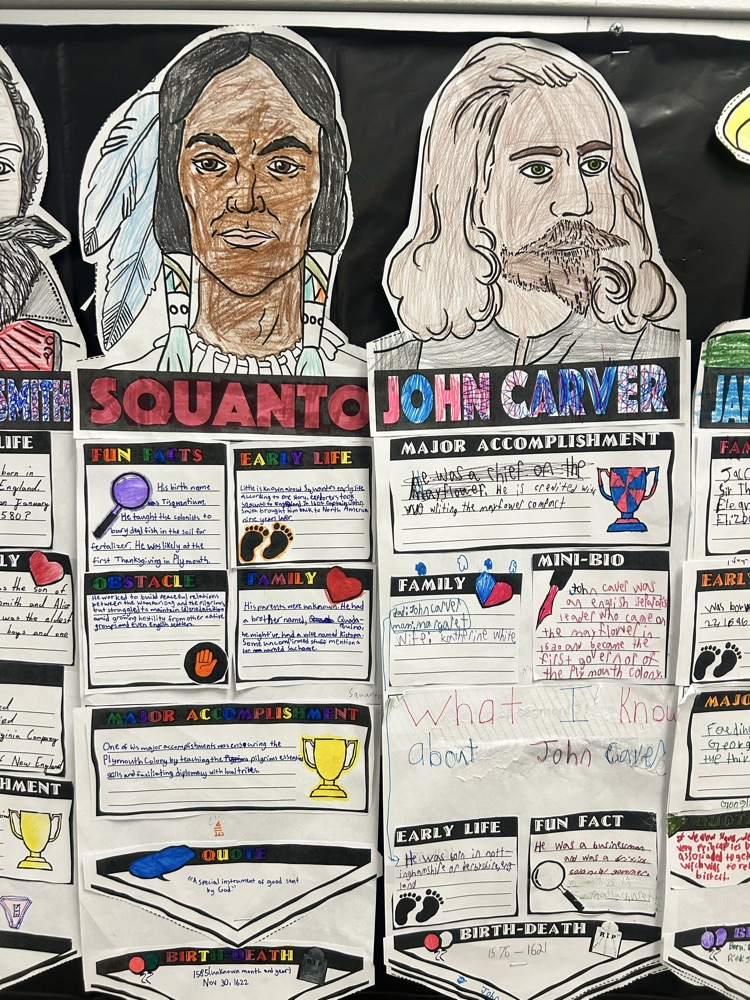 SMITH
LIFE
born in
England.
on January
580?
LY
as the son of
Smith and Alice
was the oldest
boys and one
ied
ginia Company
f New England
HMENT
SQUANTO
FUN FACTS
His birth name
was Tisquantum.
He taught the colonists, to
bury dead fish in the soil for
fertalizer. He was likely at the
first Thanksgiving in Plymouth.
EARLY LIFE
Little is known about Squanto's early life
According to one story, explorers took
Squanto to England in 1605 Captain John
Smith brought him back to North America
nine years later.
OBSTACLE
He worked to build peaceful relations
between the Wampanoag and the Pilgrims,
but struggled to maintain
amid growing hostility from other native
groups and even english settlers.
FAMILY
His parents were unknown. He had
a brother named, Quada-
quina.
he might've had a wife named Kistopa.
Some unconfirmed stuff mention a
son named Sachane.
Squanto
MAJOR ACCOMPLISHMENT
One of his major accomplishment was ensuring the
Plymouth Colony by teaching the pilgrims essential
skills and faciliating diplomacy with local tribes.
QUOTE
"A special instrument of good sent
by God."
BIRTH-DEATH
1585(unknown month and year)
Nov 30, 1622
JOHN CARVER
MAJOR ACCOMPLISHMENT
He was a chief on the
mayflower. He is credited with
writing the mayflower compact
FAMILY
dad: John Carver
mom: margaret
Wife: Katherine White
MINI-BIO
John caver was
an english separatist
leader who came on
the mayflower in
1620 and became the
first governor of
the Plymouth colony.
What I Know
about John Carver
EARLY LIFE
He was born in nott-
inghamshire or derbyshire, Eng
land
FUN FACT
He was a businessman
and was a
BIRTH-DEATH
RIP
1576-1621
John
JA
FAM
Jac
Sir Th
Elean
Elizb
EARLY
was born
MAJO
Feedin
Georg
the thir
BI
Born: